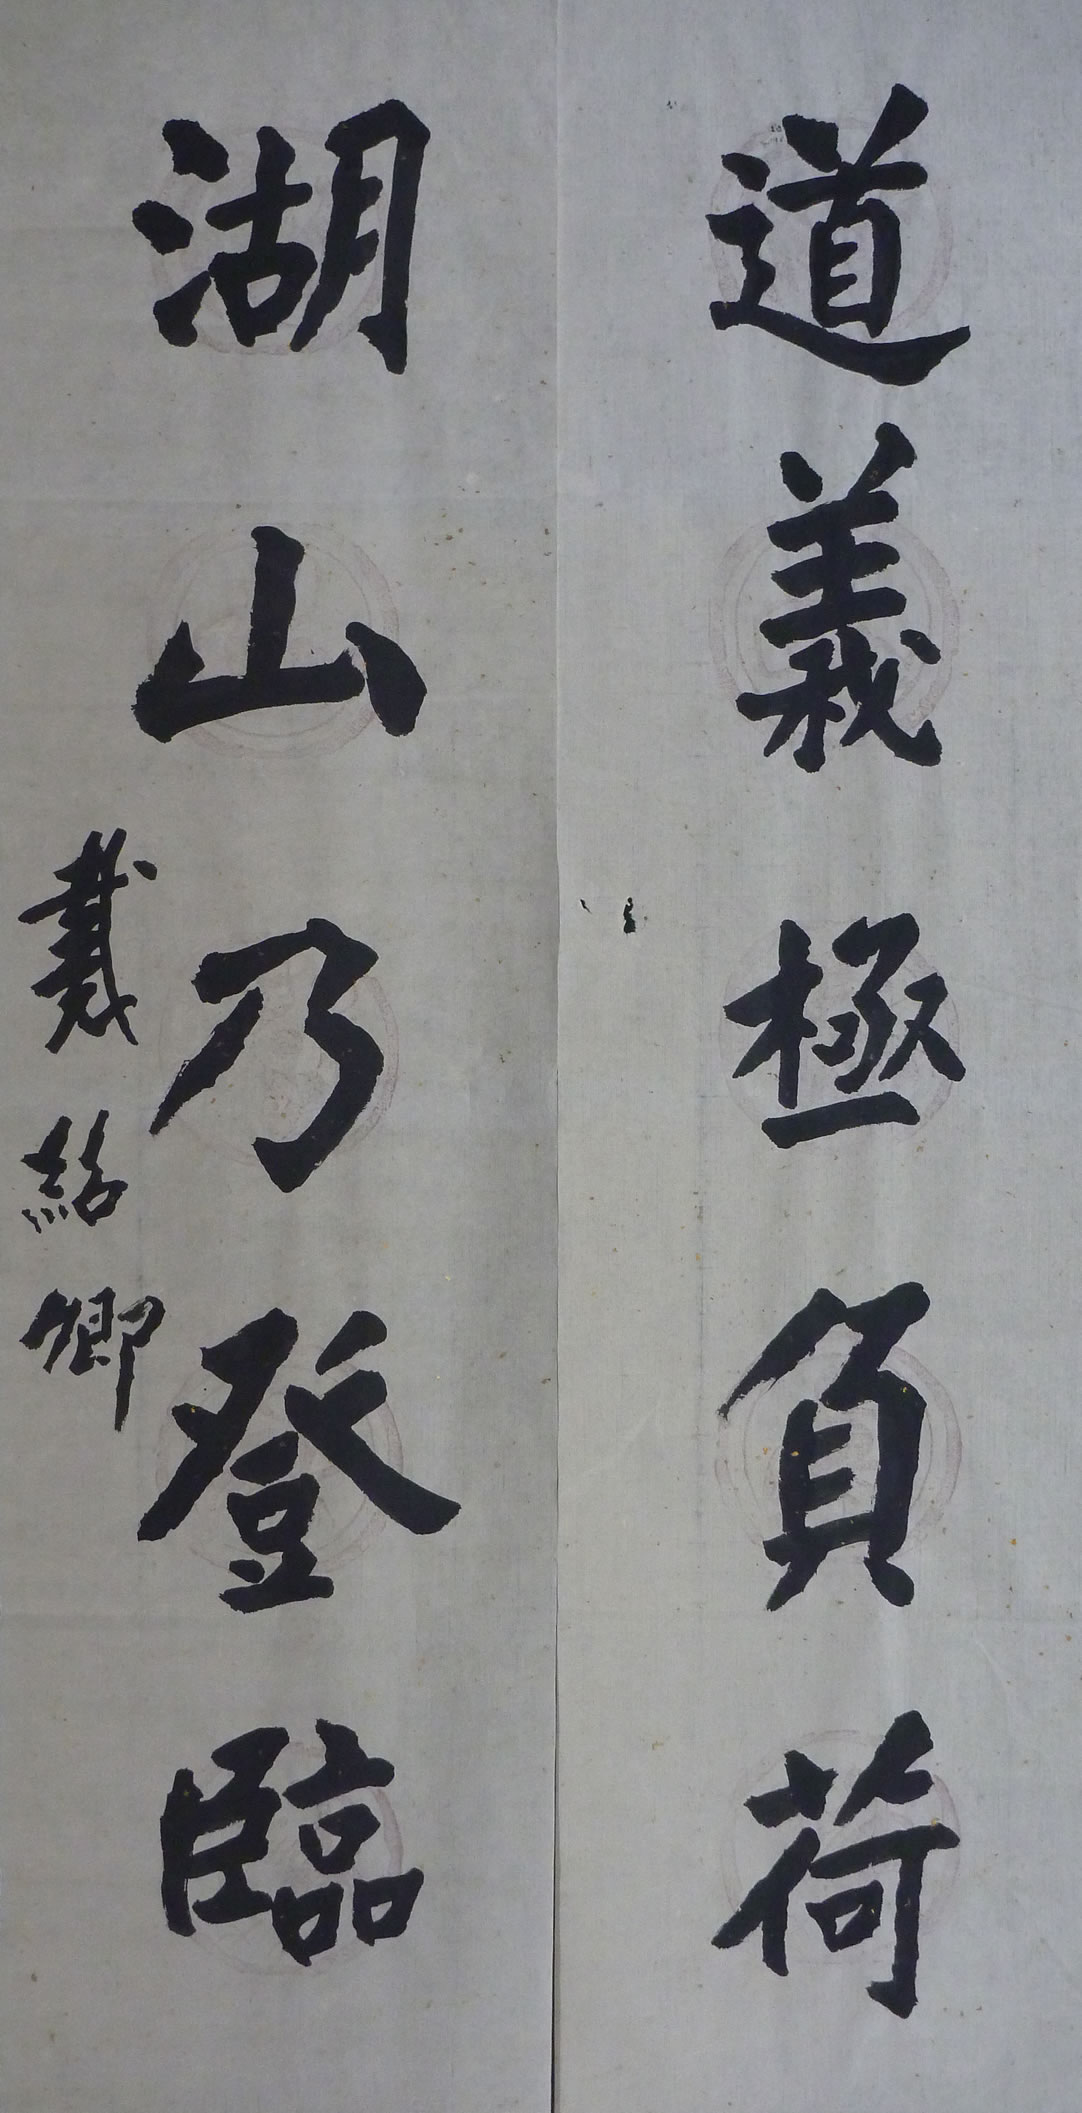 道義極負荷
湖山乃登臨
戴紹卿